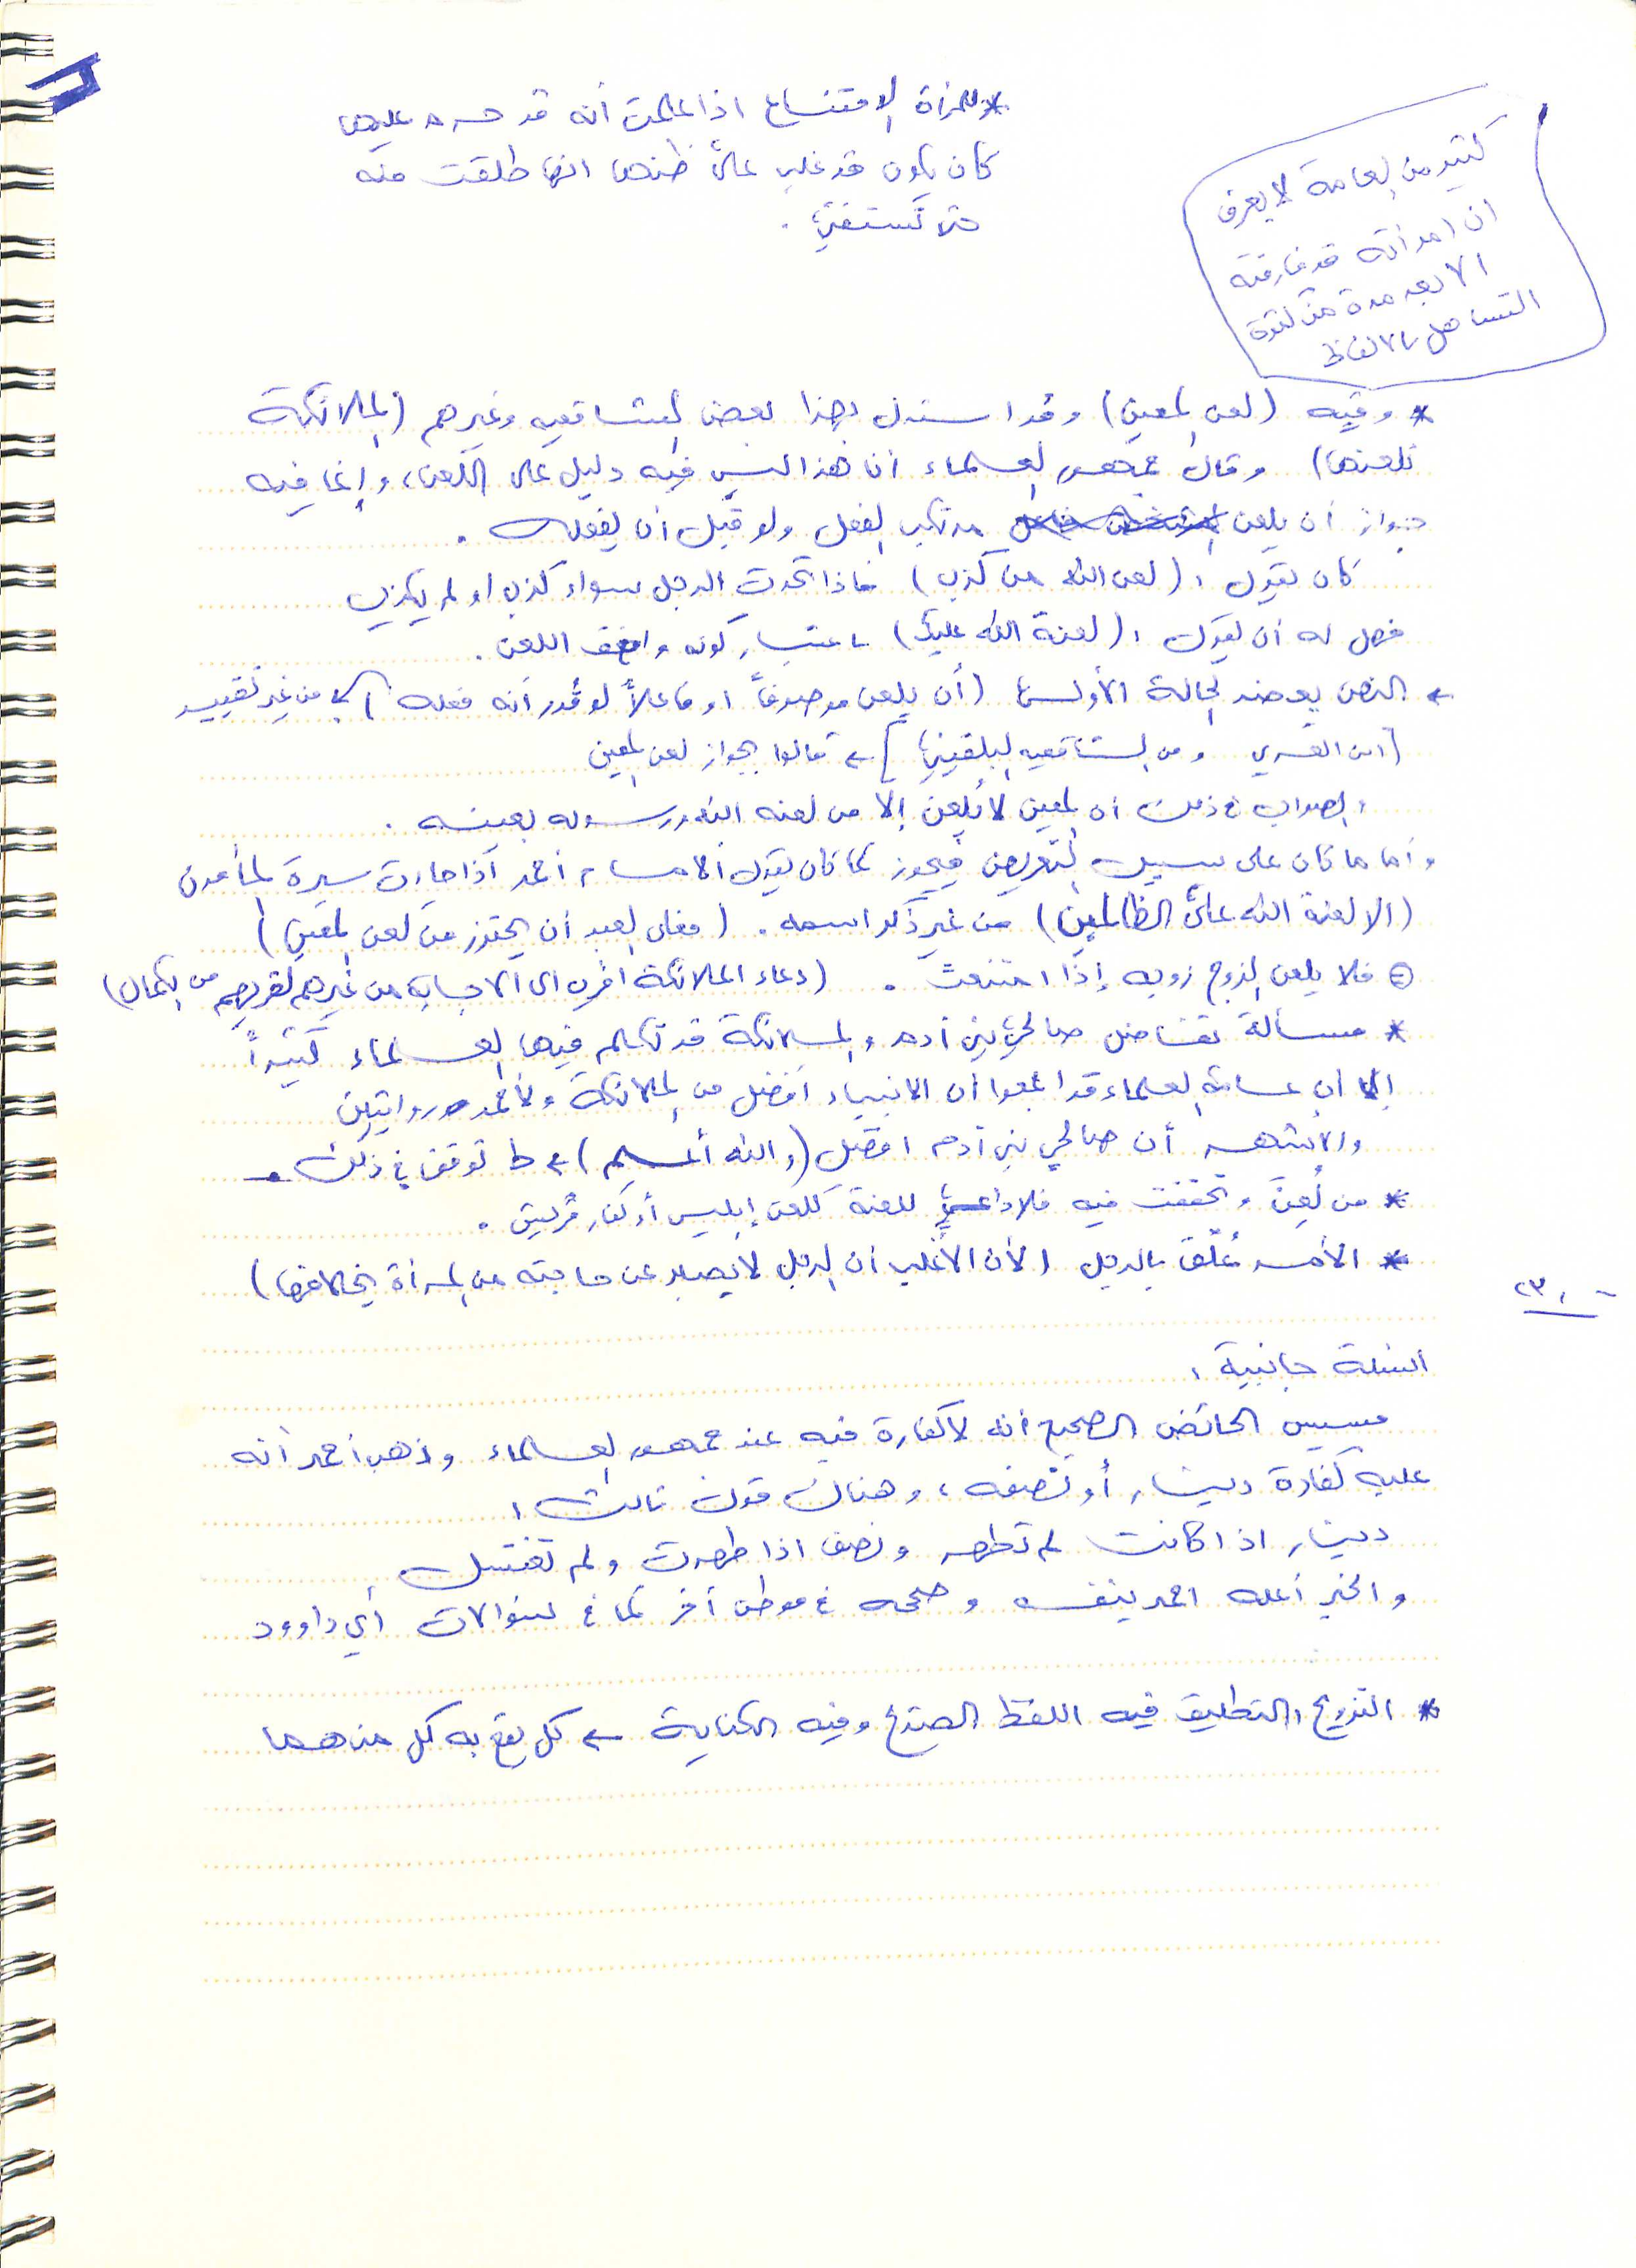 * وللمرأة الامتناع اذا علمت أنه قد حرم عليها
كان يكون قد غلب على ظنها انها طلقت منه
حتى تستفتي .
كثير من العامة لا يعرف
ان امرأته قد فارقته
الا بعد مدة من كثرة
التساهل بالالفاظ
* وفيه (لعن المعين) وقد استدل بهذا بعض الشافعيه وغيرهم (الملائكة
تلعنها) وقال جمهور العلماء أن هذا ليس فيه دليل على اللعن، وإنما فيه
جواز أن يلعن مرتكب الفعل ولو قبل أن يفعله .
كان يقول : (لعن الله من كذب) فاذا تحدث الرجل سواء كذب أو لم يكذب
فهل له أن يقول : (لعنة الله عليك) باعتبار كونه وافق اللعن .
← النص يعضد الحالة الأولى (أن يلعن موصوفاً او فاعلاً لو قُدر أنه فعله) من غير تقييد
[ابن العربي ومن الشافعيه البلقيني] ← قالوا بجواز لعن المعين
والصواب في ذلك ان المعين لا يُلعن إلا من لعنه الله ورسوله بعينه .
وأما ما كان على سبيل التعريض فيجوز كما كان يقول الامام أحمد اذا جاءت سيرة المأمون
(الا لعنة الله على الظالمين) من غير ذكر اسمه . (فعلى العبد أن يحترز من لعن المعين)
فلا يلعن الزوج زوجه إذا امتنعت . (دعاء الملائكة اقرب الى الاجابه من غيرهم لقربهم من الكمال)
* مسألة تفاضل صالحي بني آدم والملائكة قد تكلم فيها العلماء كثيراً
إلا ان عامة العلماء قد اجمعوا ان الانبياء أفضل من الملائكة ولأحمد روايتين
والاشهر أن صالحي بني آدم افضل (والله أعلم) ← ط توقف في ذلك .
* من لُعِنَ وتحققت فيه فلا داعي للعنة كلعن إبليس أو كفار قريش .
* الأمر عُلّق بالرجل (لأن الأغلب أن الرجل لا يصبر عن حاجته من المرأة بخلافها)
٢٣٠٠
اسئلة جانبية :
مسيس الحائض الصحيح انه لا كفارة فيه عند جمهور العلماء وذهب أحمد أنه
عليه كفارة دينار أو نصفه ، وهناك قول ثالث :
دينار اذا كانت لم تطهر ونصف اذا طهرت ولم تغتسل .
والخبر أعله احمد بنفسه وصححه في موطن آخر كما في سؤالات أبي داوود
* التزويج والتطليق فيه اللفظ الصريح وفيه الكناية ← كل يقع به كل منهما